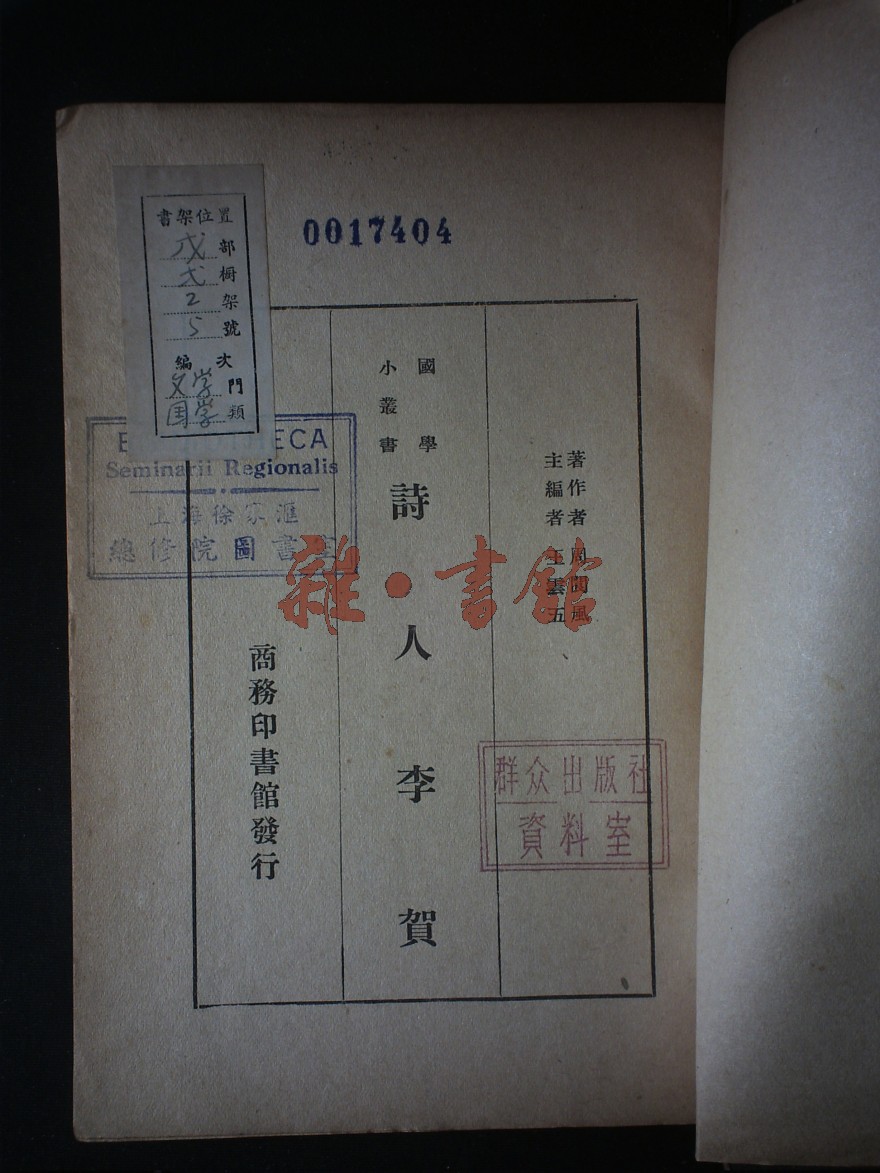 0017404
書架位置
戊部
弍橱
2架
15號
編次
文学門
国学類
著作者周閬風
主編者王雲五
國學
小叢書
詩人李賀
商務印書館發行
Seminarii Regionalis
上海徐家滙
總修院圖書室
雜·書館
群众出版社
資料室